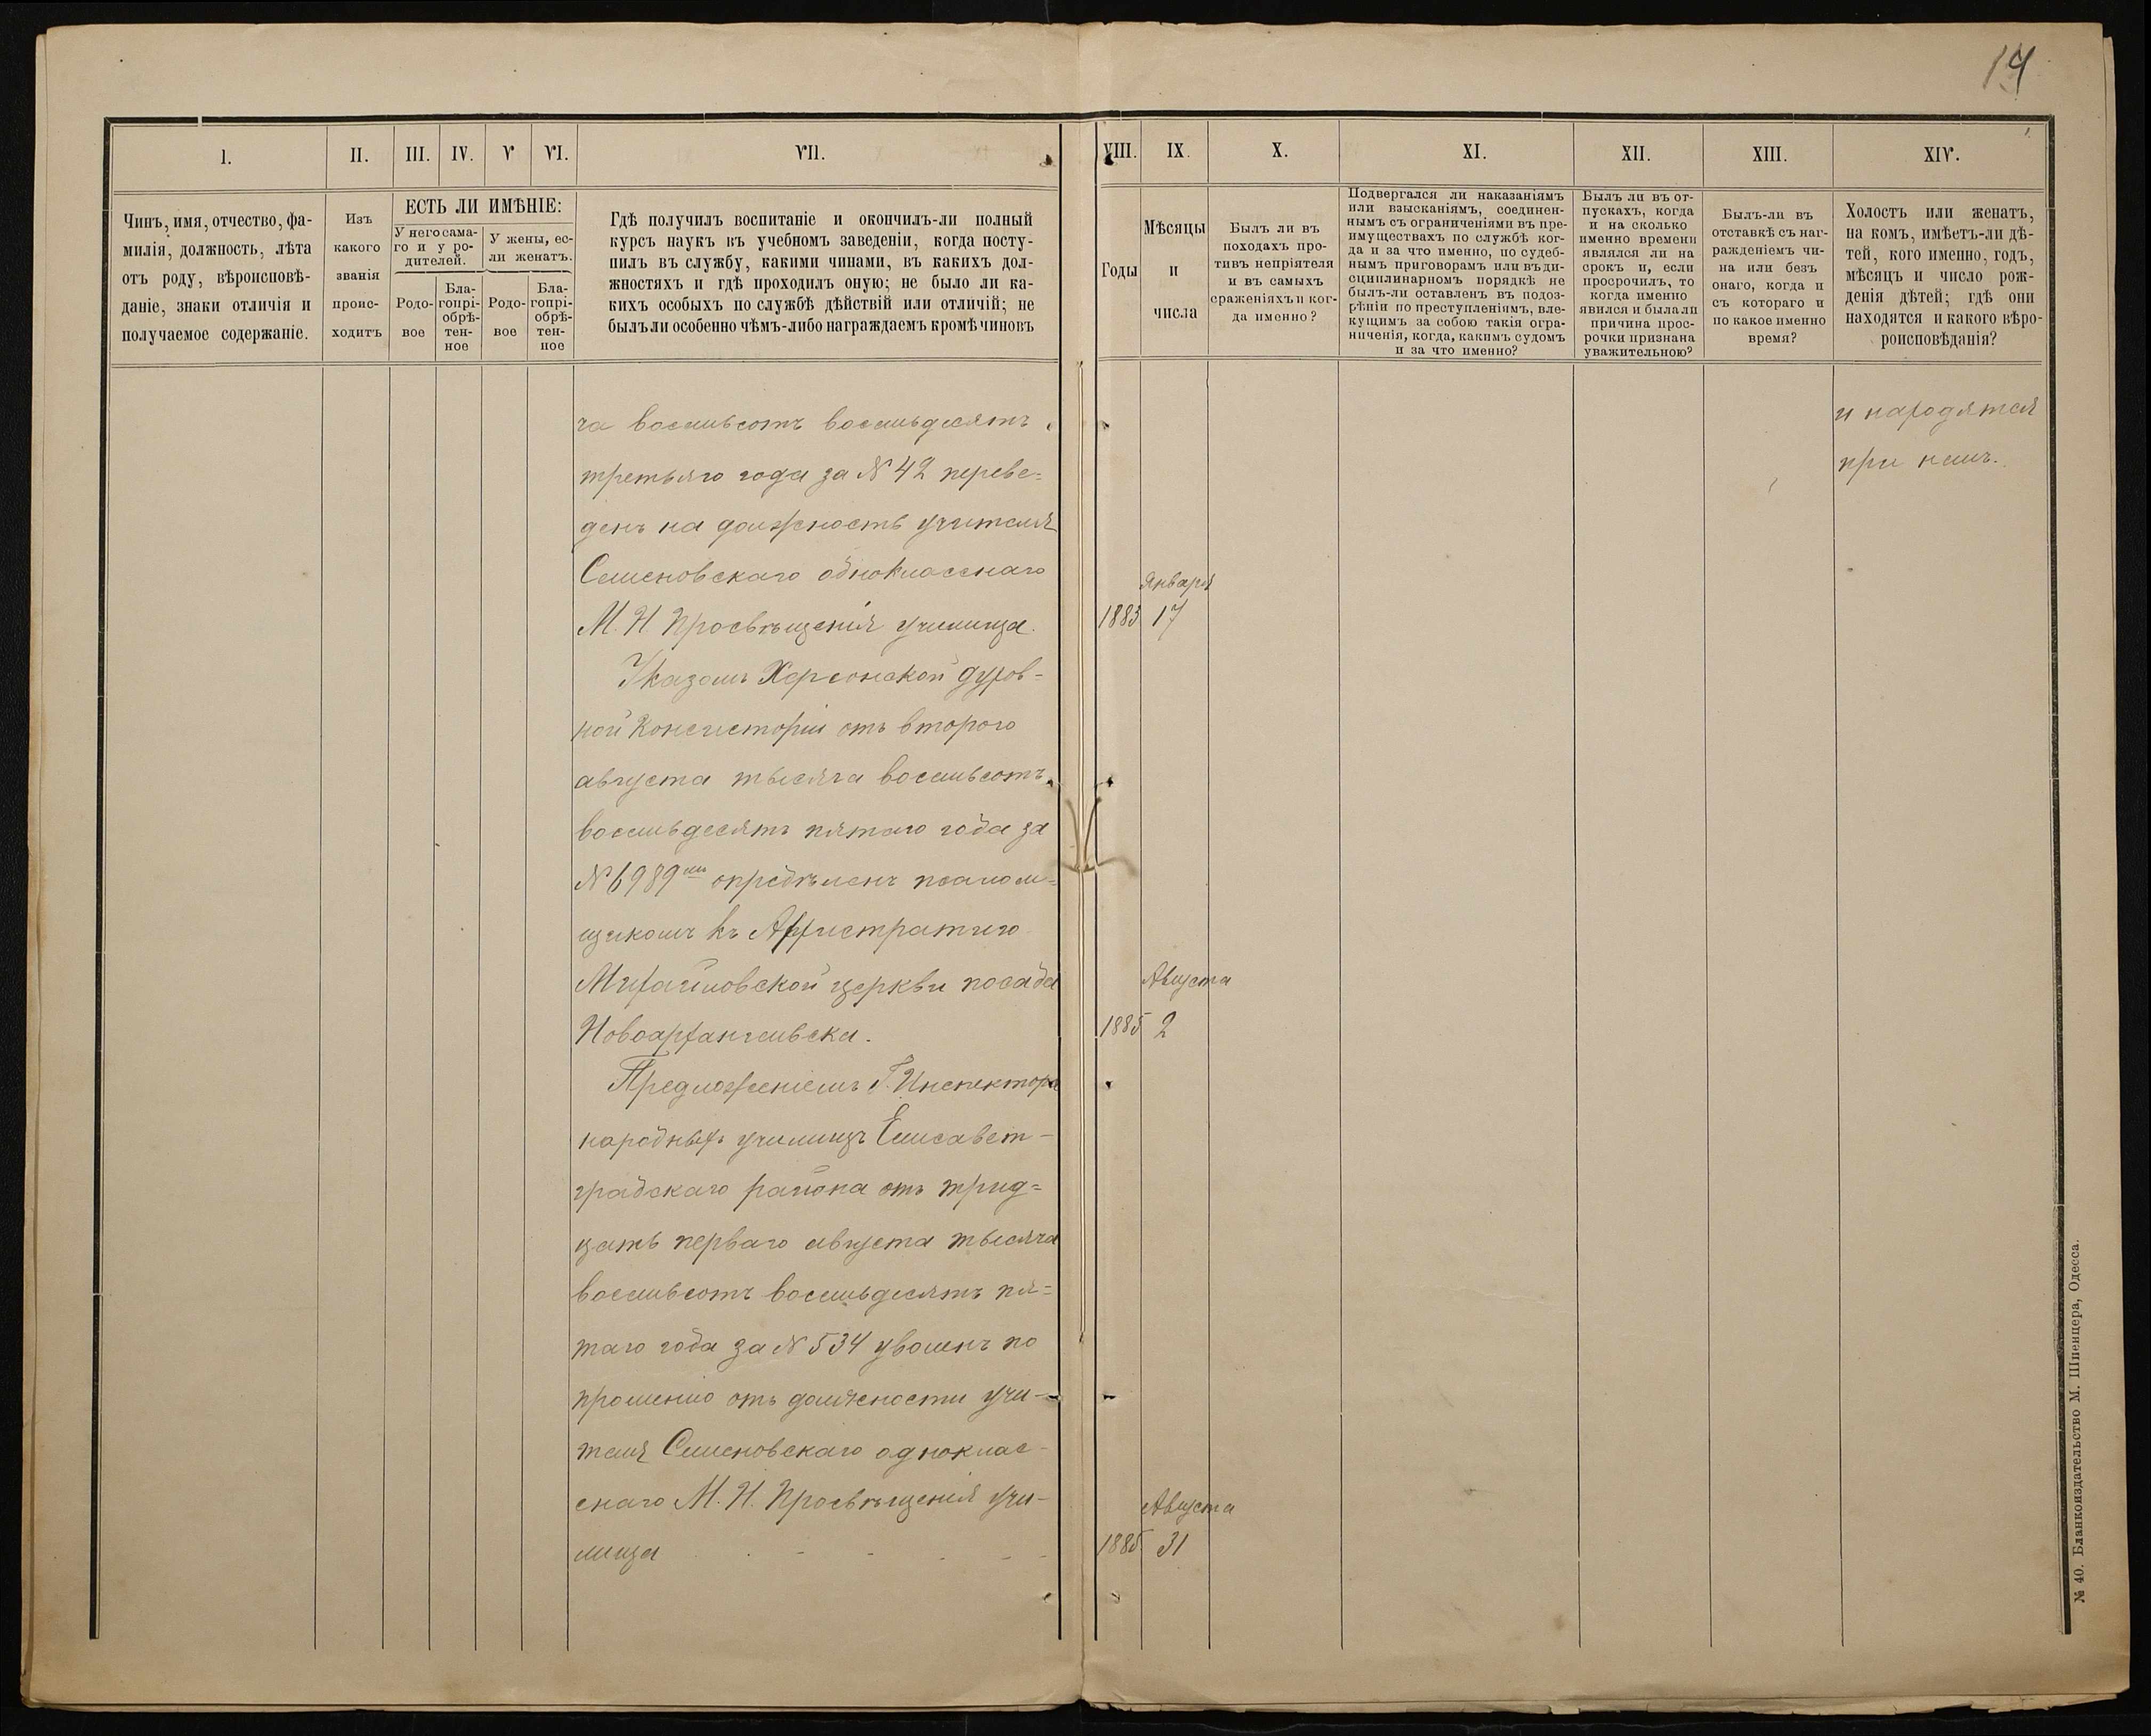 14
I. II. III. IV. V VI. VII. VIII. IX. X. XI. XII. XIII. XIV.
Чинъ, имя, отчество, фа-
милія, должность, лѣта
отъ роду, вѣроисповѣ-
даніе, знаки отличія и
получаемое содержаніе.
Изъ
какого
званія
проис-
ходитъ
ЕСТЬ ЛИ ИМѢНІЕ:
У него сама-
го и у ро-
дителей.
У жены, ес-
ли женатъ.
Родо-
вое
Бла-
гопрі-
обрѣ-
тен-
ное
Родо-
вое
Бла-
гопрі-
обрѣ-
тен-
ное
Гдѣ получилъ воспитаніе и окончилъ-ли полный
курсъ наукъ въ учебномъ заведеніи, когда посту-
пилъ въ службу, какими чинами, въ какихъ дол-
жностяхъ и гдѣ проходилъ оную; не было ли ка-
кихъ особыхъ по службѣ дѣйствій или отличій; не
былъ ли особенно чѣмъ-либо награждаемъ кромѣ чиновъ
Годы
Мѣсяцы
и
числа
Былъ ли въ
походахъ про-
тивъ непріятеля
и въ самыхъ
сраженіяхъ и ког-
да именно?
Подвергался ли наказаніямъ
или взысканіямъ, соединен-
нымъ съ ограниченіями въ пре-
имуществахъ по службѣ ког-
да и за что именно, по судеб-
нымъ приговорамъ или въ ди-
сциплинарномъ порядкѣ не
былъ-ли оставленъ въ подоз-
рѣніи по преступленіямъ, вле-
кущимъ за собою такія огра-
ниченія, когда, какимъ судомъ
и за что именно?
Былъ ли въ от-
пускахъ, когда
и на сколько
именно времени
являлся ли на
срокъ и, если
просрочилъ, то
когда именно
явился и была ли
причина прос-
рочки признана
уважительною?
Былъ-ли въ
отставкѣ съ наг-
ражденіемъ чи-
на или безъ
онаго, когда и
съ котораго и
по какое именно
время?
Холостъ или женатъ,
на комъ, имѣетъ-ли дѣ-
тей, кого именно, годъ,
мѣсяцъ и число рож-
денія дѣтей; гдѣ они
находятся и какого вѣро-
роисповѣданія?
ча восемьсотъ восемьдесятъ
третьяго года за № 42 переве=
денъ на должность учителя
Семеновскаго однокласснаго
М. Н. Просвѣщенія училища.
Указомъ Херсонской духов=
ной Консисторіи отъ второго
августа тысяча восемьсотъ
восемьдесятъ пятаго года за
№ 6989мъ опредѣленъ псалом=
щикомъ къ Архистратиго
Михайловской церкви посада
Новоархангельска.
Предложеніемъ Г. Инспектора
народныхъ училищъ Елисавет-
градскаго района отъ трид=
цать перваго августа тысяча
восемьсотъ восемьдесятъ пя=
таго года за № 534 уволенъ по
прошенію отъ должности учи-
теля Семеновскаго однoклас-
снаго М. Н. Просвѣщенія учи-
лища
Января
1883 17
Августа
1885 2
Августа
1885 31
и находятся
при немъ.
№ 40. Бланкоиздательство М. Шпенцера, Одесса.